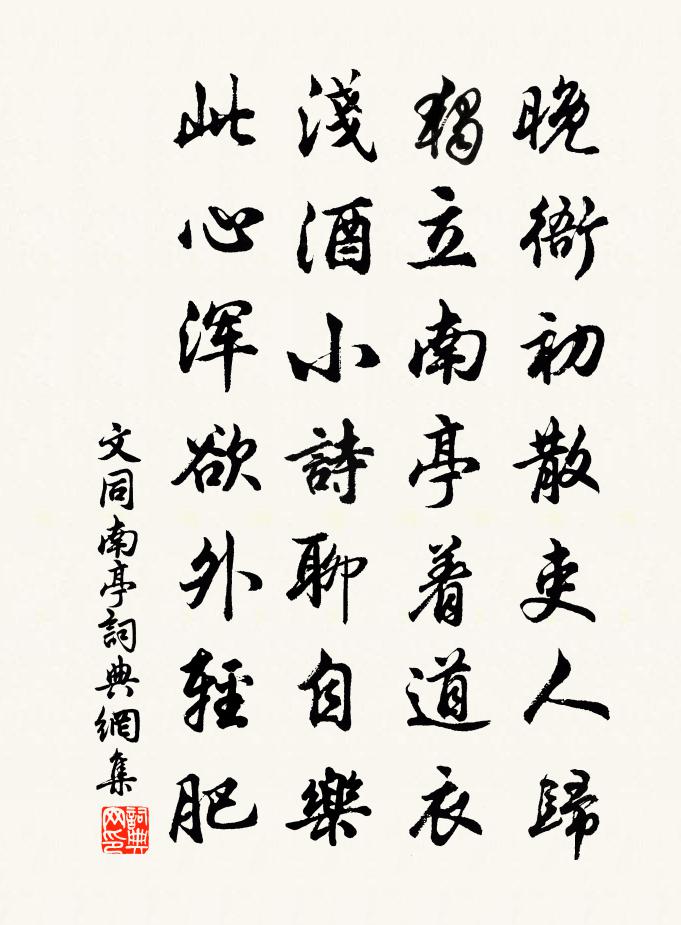 晚衙初散吏人歸
獨立南亭着道衣
淺酒小詩聊自樂
此心浑欲外輕肥
文同南亭詞典網集
詞典网印